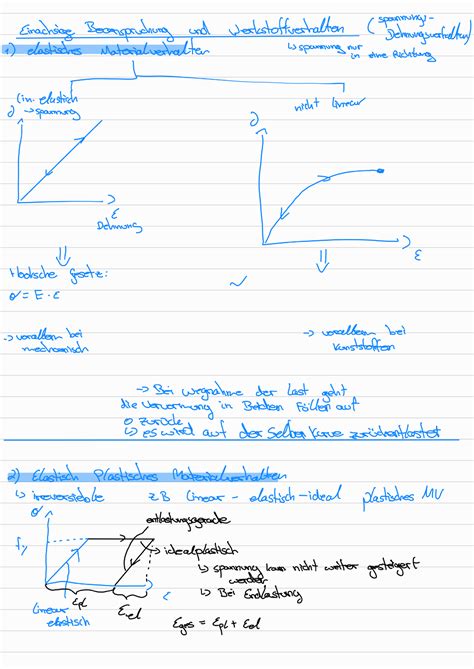 Einachsige Beanspruchung und Werkstoffverhalten (spannung-
Dehnungsverhalten)
1) elastisches Materialverhalten
↳ spannung nur
in eine Richtung
lin. elastisch
nicht linear
σ → spannung
σ
ε
Dehnung
ε
⇓
⇓
Hooksche Gesetz:
σ = E · ε
~
→ vorallem bei
mechanisch
→ vorallem bei
Kunststoffen
→ Bei wegnahme der Last geht
die Verformung in Beiden Fällen auf
0 zurück
↳ es wird auf der Selben Kurve zurückentlastet
2) Elastisch Plastisches Materialverhalten
↳ irreversible z.B linear - elastisch - ideal plastisches MV
σ
entlastungsgerade
fy
→ idealplastisch
↳ spannung kann nicht weiter gesteigert
werden
↳ Bei Entlastung
ε
εpl
εel
linear
elastisch
εges = εpl + εel